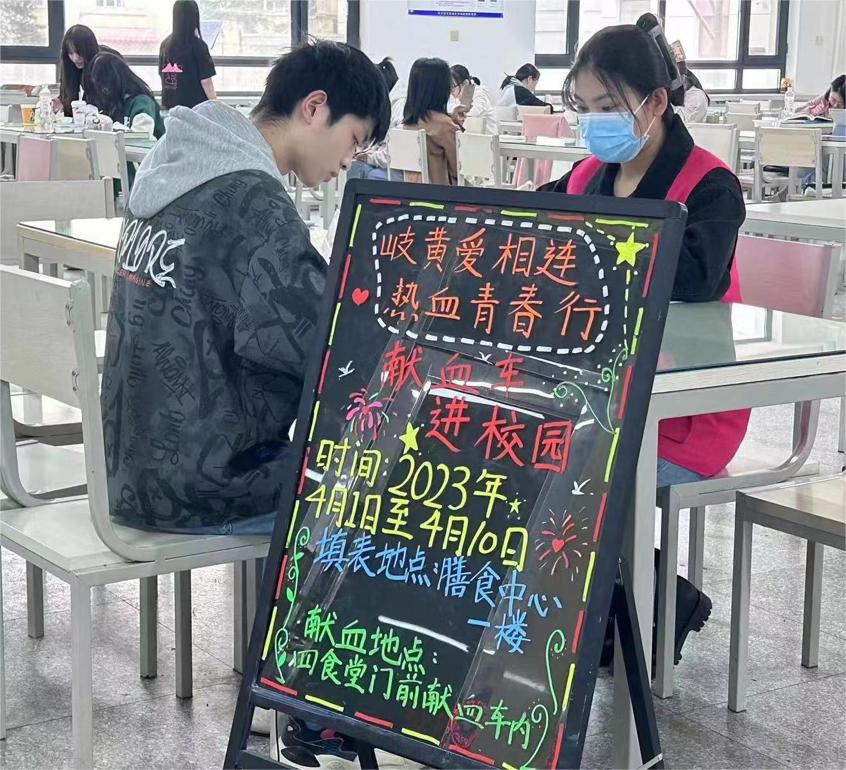 岐黄爱相连
热血青春行
献血车
进校园
时间:2023年
4月1日至4月10日
填表地点:膳食中心
一楼
献血地点:
四食堂门前献血车内